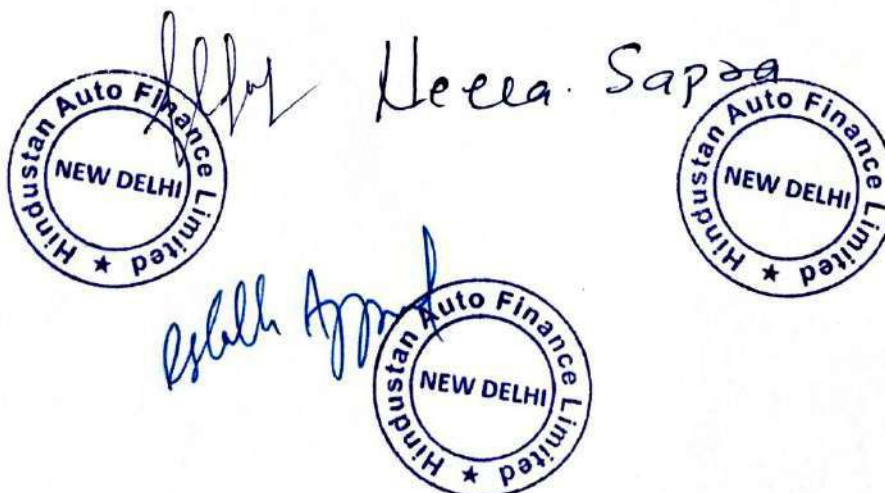 Neera. Sapra
Hindustan Auto Finance Limited ★
NEW DELHI
Hindustan Auto Finance Limited ★
NEW DELHI
Hindustan Auto Finance Limited ★
NEW DELHI